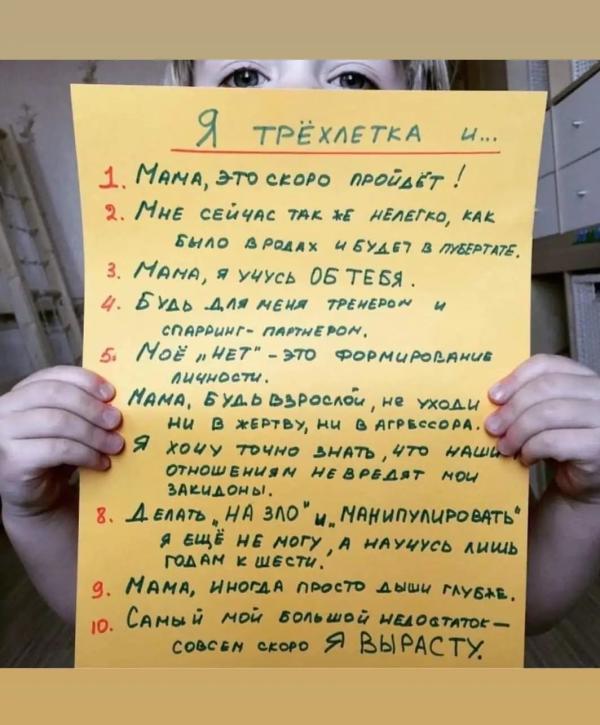 Я ТРЁХЛЕТКА и...
1. МАМА, ЭТО СКОРО ПРОЙДЁТ!
2. МНЕ СЕЙЧАС ТАК ЖЕ НЕЛЕГКО, КАК
БЫЛО В РОДАХ И БУДЕТ В ПУБЕРТАТЕ.
3. МАМА, Я УЧУСЬ ОБ ТЕБЯ.
4. БУДЬ ДЛЯ МЕНЯ ТРЕНЕРОМ И
СПАРРИНГ-ПАРТНЕРОМ.
5. МОЁ „НЕТ" - ЭТО ФОРМИРОВАНИЕ
ЛИЧНОСТИ.
МАМА, БУДЬ ВЗРОСЛОЙ, НЕ УХОДИ
НИ В ЖЕРТВУ, НИ В АГРЕССОРА.
Я ХОЧУ ТОЧНО ЗНАТЬ, ЧТО НАШИМ
ОТНОШЕНИЯМ НЕ ВРЕДЯТ МОИ
ЗАКИДОНЫ.
8. ДЕЛАТЬ „НА ЗЛО" И „МАНИПУЛИРОВАТЬ"
Я ЕЩЁ НЕ МОГУ, А НАУЧУСЬ ЛИШЬ
ГОДАМ К ШЕСТИ.
9. МАМА, ИНОГДА ПРОСТО ДЫШИ ГЛУБЖЕ.
10. САМЫЙ МОЙ БОЛЬШОЙ НЕДОСТАТОК—
СОВСЕМ СКОРО Я ВЫРАСТУ.